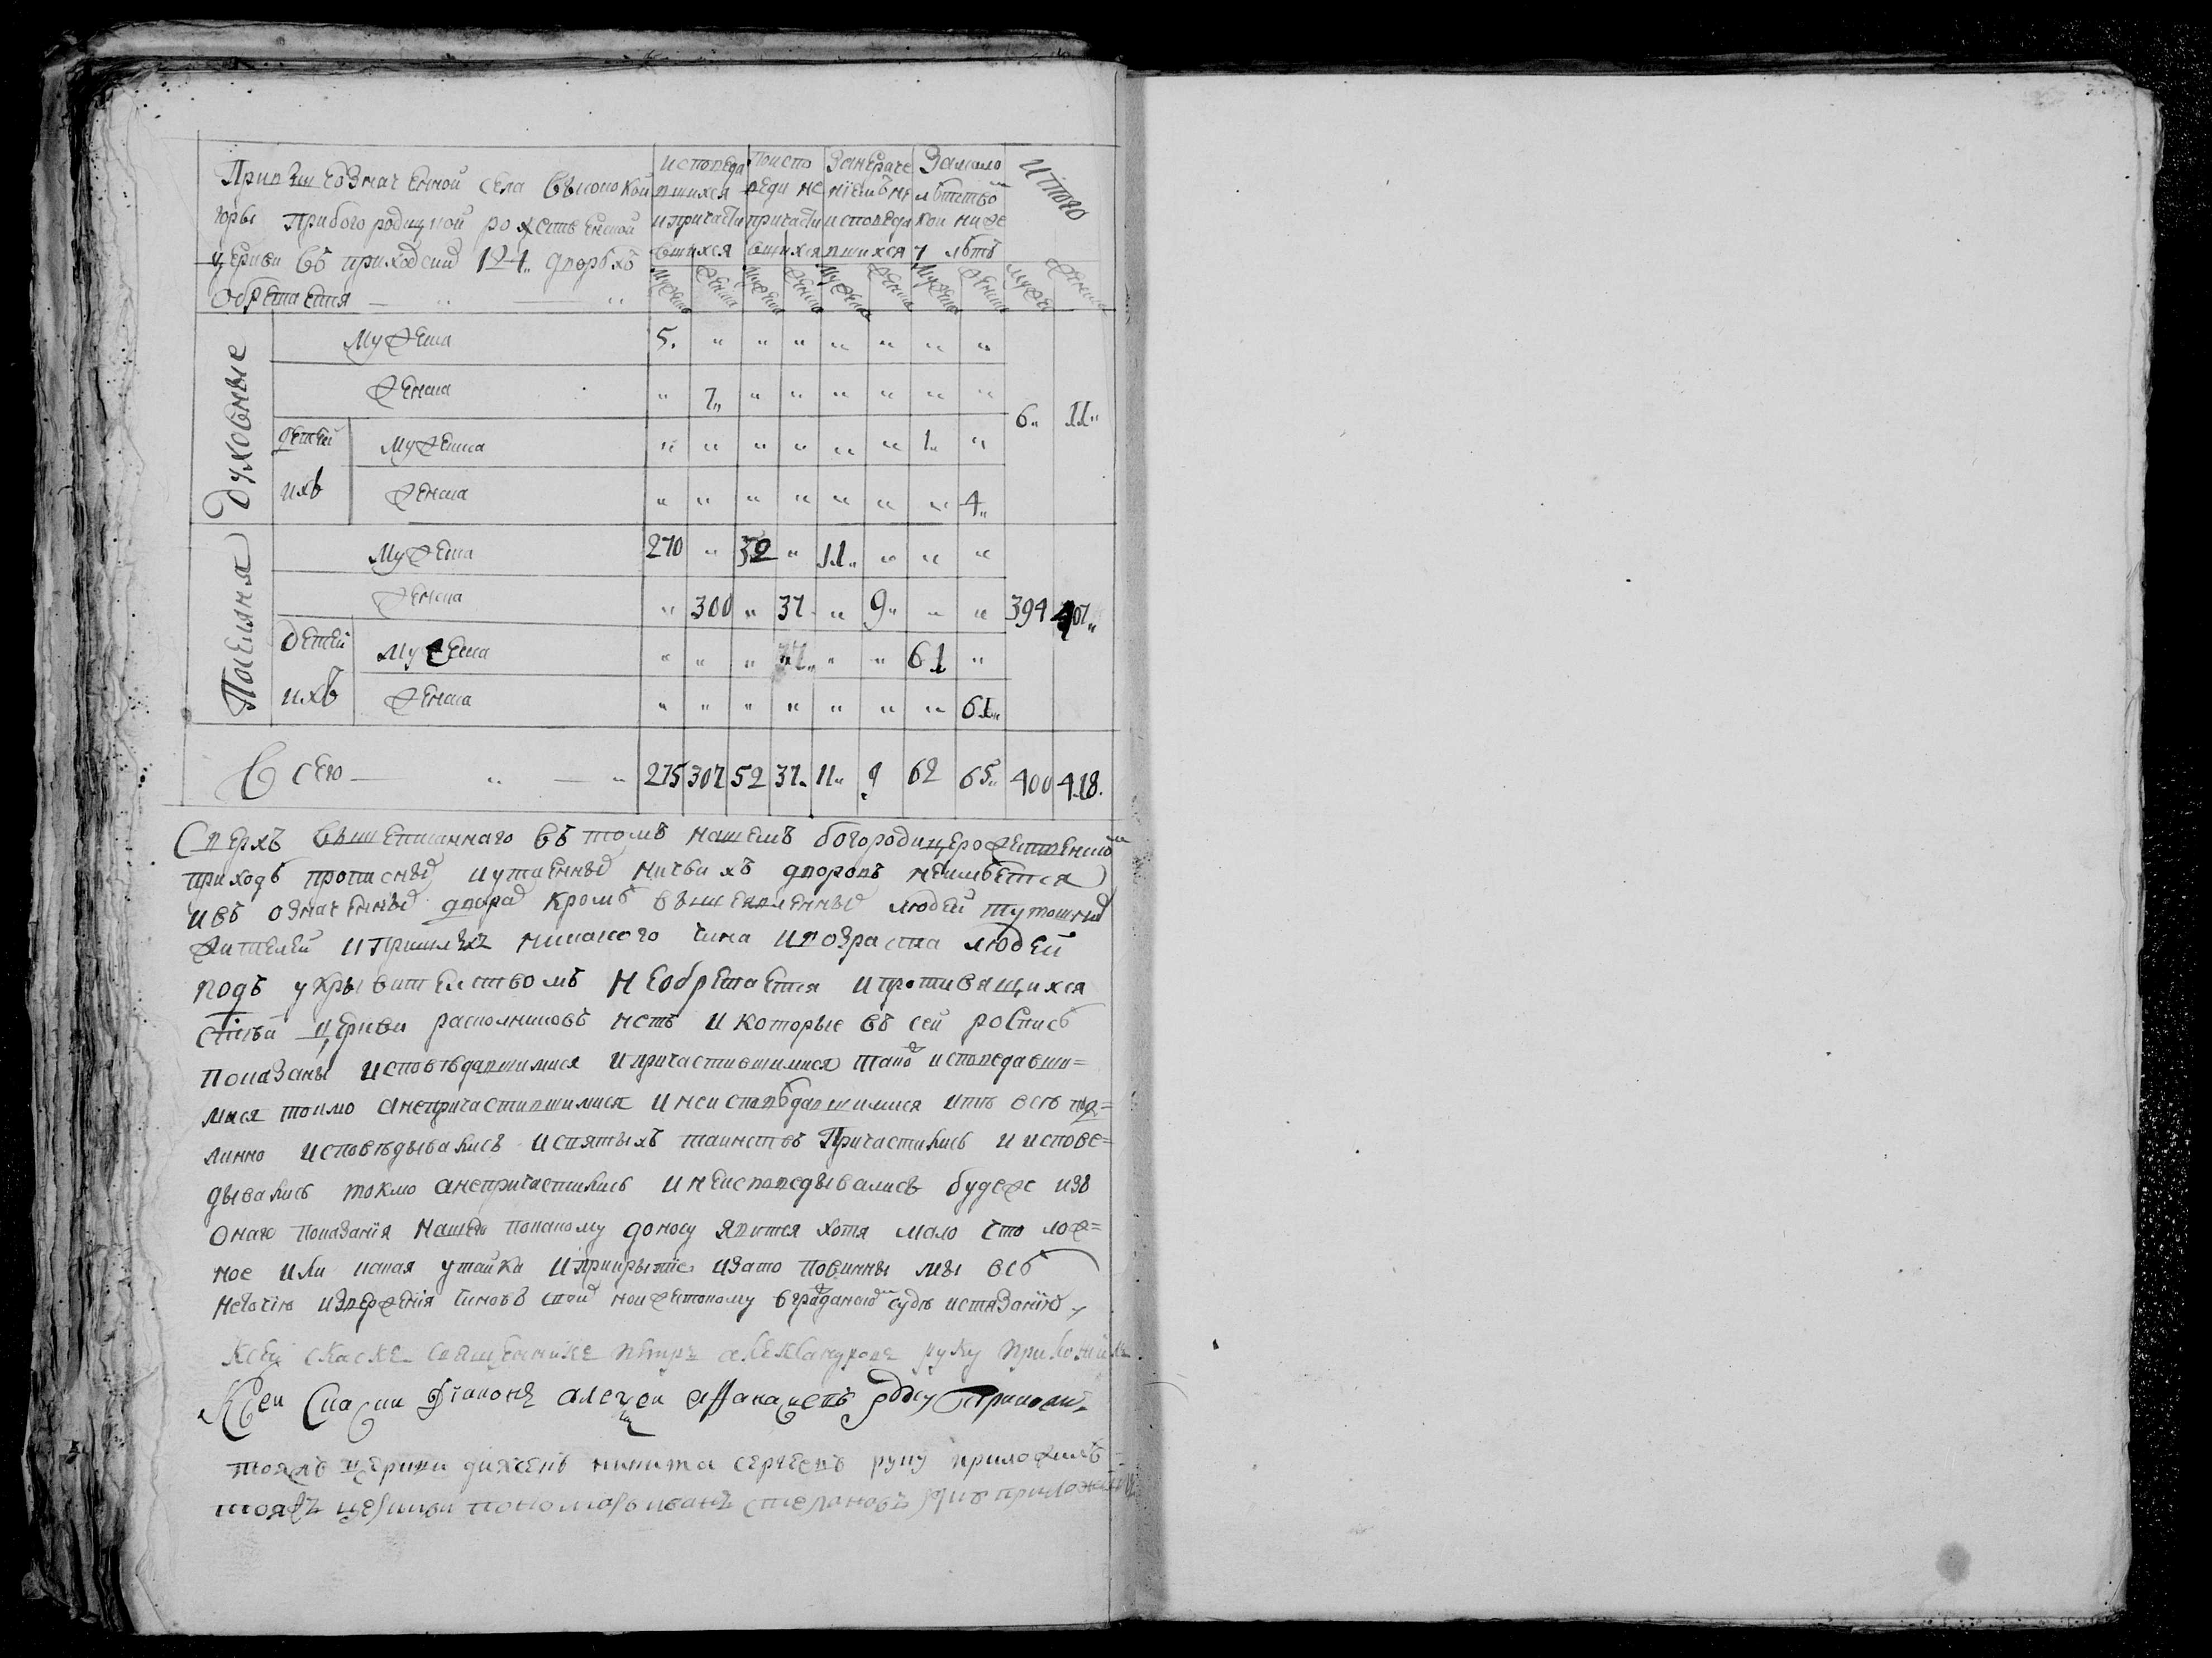 При вышеозначенной села высокой
горы при богородицкой рождественской
церкви въ приходскихъ 124 дворѣхъ
обретается
исповедавшихся и причастившихся
По исповеди не причастившихся
За нераченiемъ не исповедавшихся
За малолѣтствомъ кои ниже 7 лѣтъ
итого
Мужеска Женска Мужеска Женска Мужеска Женска Мужеска Женска Мужеска Женска
Духовные
Мужеска 5. „ „ „ „ „ „ „
Женска „ 7„ „ „ „ „ „ „
детей ихъ
Мужеска „ „ „ „ „ „ 1„ „
Женска „ „ „ „ „ „ „ 4„
6„ 11„
Мужеска 270 „ 52 „ 11„ „ „ „
Женска „ 300 „ 37 „ 9„ „ „
394 407„
Детей ихъ
Мужеска „ „ „ „ „ 61 „
Женска „ „ „ „ „ „ „ 61„
Всего 275 307 52 37„ 11„ 9 62 65„ 400 418.
Сверхъ вышеписаннаго въ томъ нашемъ богородицерожественскомъ
приходѣ прописныхъ и утаенныхъ ничьихъ дворовъ неимѣется
и въ означенныхъ дворахъ кромѣ вышеявленныхъ людей тутошныхъ
жителей и пришлыхъ никакого чина и возраста людей
подъ укрывителствомъ необретается и противящихся
стѣй церкви расколниковъ нетъ и которые въ сей росписѣ
показаны исповѣдавшимися и причастившимися такожъ исповедавши=
мися токмо а непричастившимися и неисповѣдавшимися и тѣ всѣ под=
линно исповѣдывались и святыхъ таинствъ Причастились и испове=
дывались токмо а непричастились и неисповедывались будеже изъ
онаго показанiя нашего по какому доносу явится хотя мало что лож=
ное или какая утайка и прикрытiе и за то повинны мы всѣ
неточiю извержения чиновъ своихъ но и жестокому в гражданскомъ судѣ истязанiю
Ксей скаске священникъ петръ александровъ руку приложилъ
Ксей Скаски Дiаконъ алеѯей Афанасьевъ руку Приложилъ
тояжъ церкви дьячекъ никита сергеевъ руку приложилъ
тояжъ церкви пономарь иванъ степановъ руку приложилъ